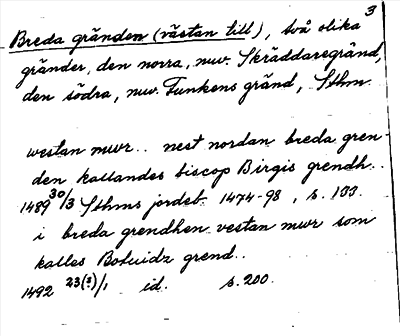 3
Breda gränden (västan till), två olika
gränder, den norra, nuv. Skräddaregränd,
den södra, nuv. Funkens gränd, Sthm.
westan mwr.. nest nordan breda gren-
den kallandes biscop Birgis grendh..
1489 30/3 Sthms jordeb. 1474-98, s. 133.
i breda grendhen vestan mwr som
kalles Botuidz grend..
1492 23(?)/1 id. s. 200.